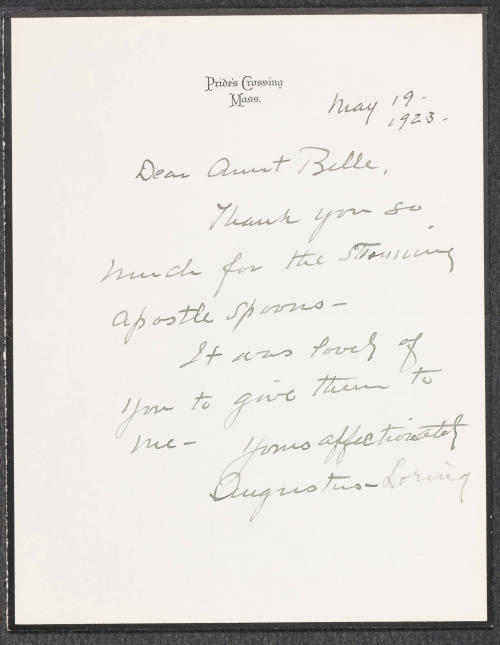 Pride's Crossing
Mass.
May 19-
1923-
Dear Aunt Belle,
Thank you so
much for the stunning
apostle spoons-
It was lovely of
you to give them to
me- Yours affectionately
Augustus- Loring